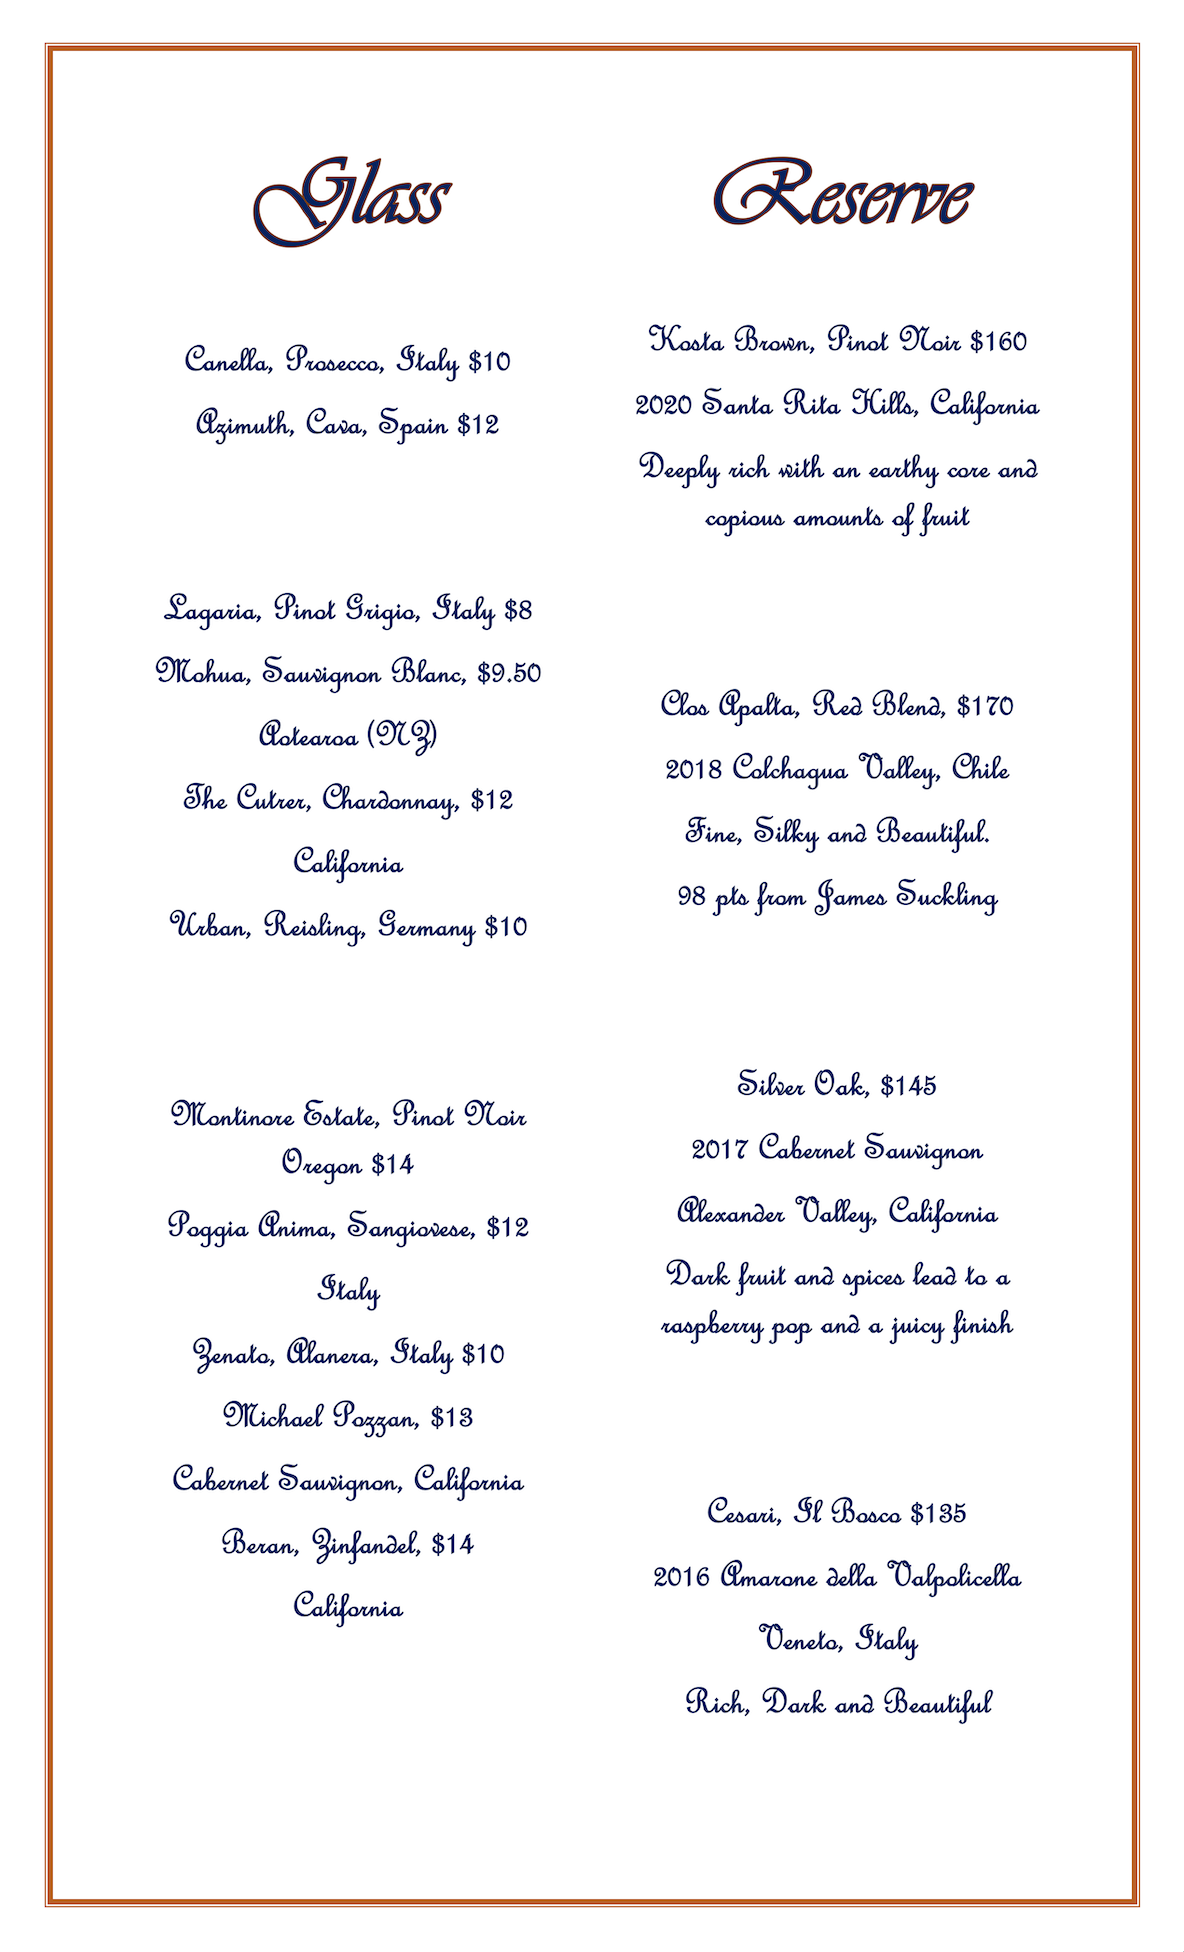 Glass
Canella, Prosecco, Italy $10
Azimuth, Cava, Spain $12
Lagaria, Pinot Grigio, Italy $8
Mohua, Sauvignon Blanc, $9.50
Aotearoa (NZ)
The Cutrer, Chardonnay, $12
California
Urban, Reisling, Germany $10
Montinore Estate, Pinot Noir
Oregon $14
Poggia Anima, Sangiovese, $12
Italy
Zenato, Alanera, Italy $10
Michael Pozzan, $13
Cabernet Sauvignon, California
Beran, Zinfandel, $14
California
Reserve
Kosta Brown, Pinot Noir $160
2020 Santa Rita Hills, California
Deeply rich with an earthy core and
copious amounts of fruit
Clos Apalta, Red Blend, $170
2018 Colchagua Valley, Chile
Fine, Silky and Beautiful.
98 pts from James Suckling
Silver Oak, $145
2017 Cabernet Sauvignon
Alexander Valley, California
Dark fruit and spices lead to a
raspberry pop and a juicy finish
Cesari, Il Bosco $135
2016 Amarone della Valpolicella
Veneto, Italy
Rich, Dark and Beautiful